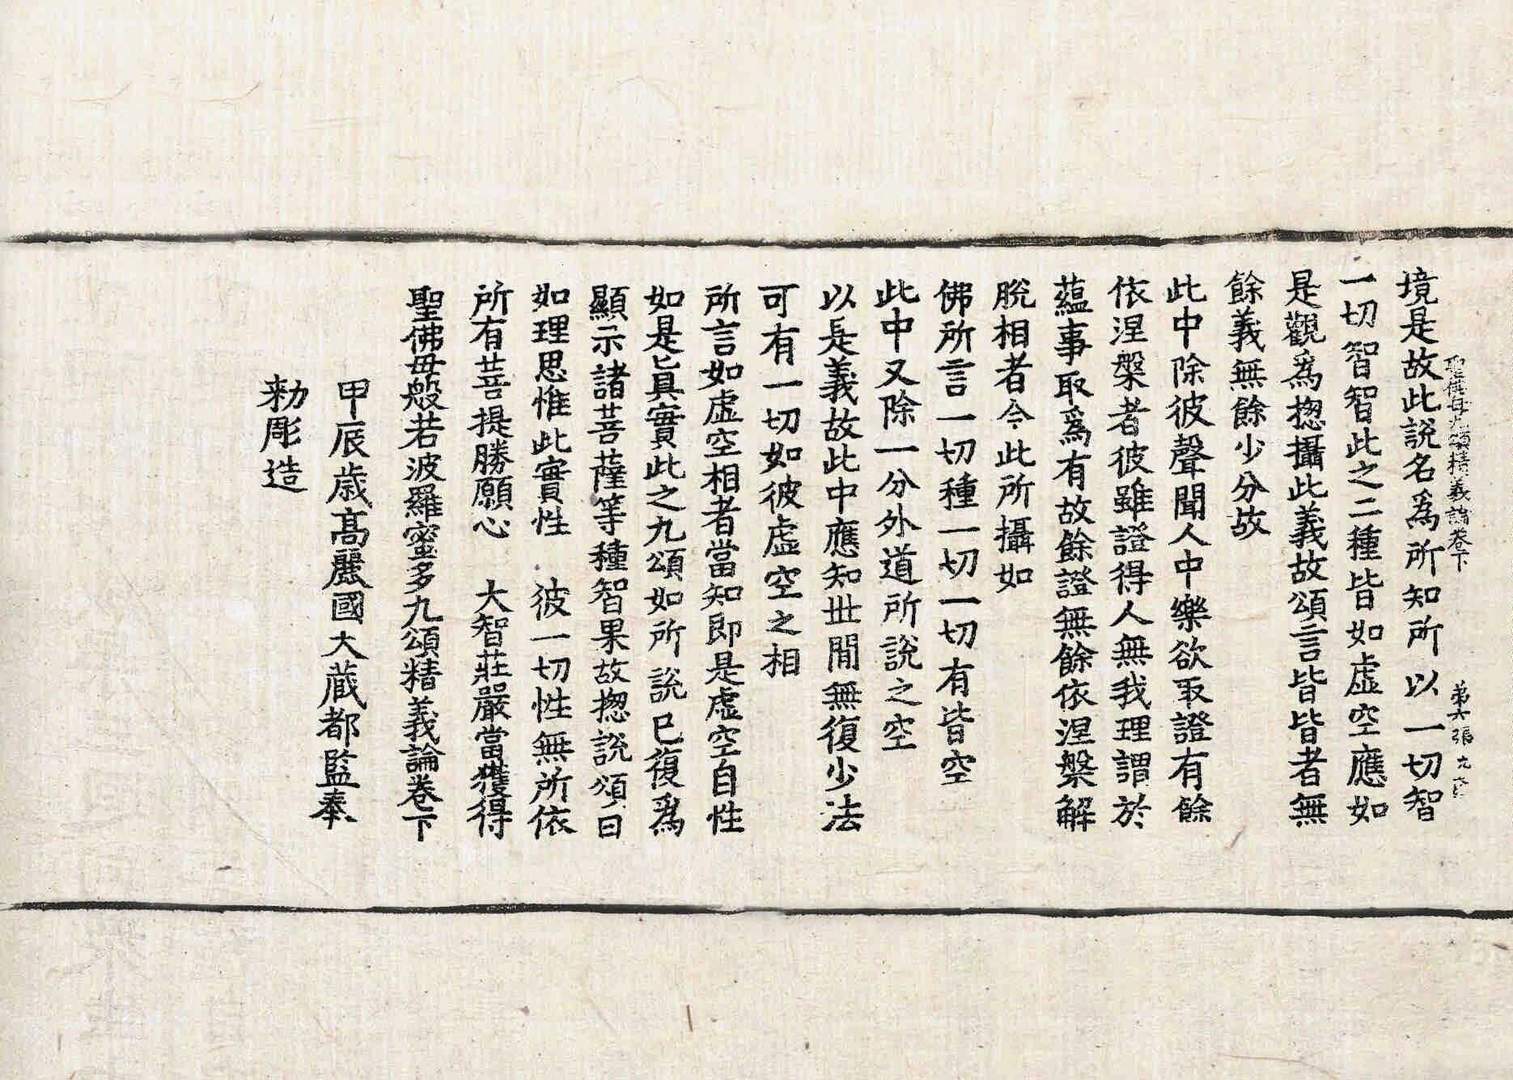 聖佛母九頌精義論卷下　第六張　九
境是故此說名爲所知所以一切智
一切智智此之二種皆如虛空應如
是觀爲揔攝此義故頌言皆皆者無
餘義無餘少分故
此中除彼聲聞人中樂欲取證有餘
依涅槃者彼雖證得人無我理謂於
蘊事取爲有故餘證無餘依涅槃解
脫相者令此所攝如
佛所言一切種一切一切有皆空
此中又除一分外道所說之空
以是義故此中應知世閒無復少法
可有一切如彼虛空之相
所言如虛空相者當知即是虛空自性
如是旨眞實此之九頌如所說已復爲
顯示諸菩薩等種智果故揔說頌曰
如理思惟此實性　彼一切性無所依
所有菩提勝願心　大智莊嚴當獲得
聖佛母般若波羅蜜多九頌精義論卷下
甲辰歲高麗國大藏都監奉
勑彫造